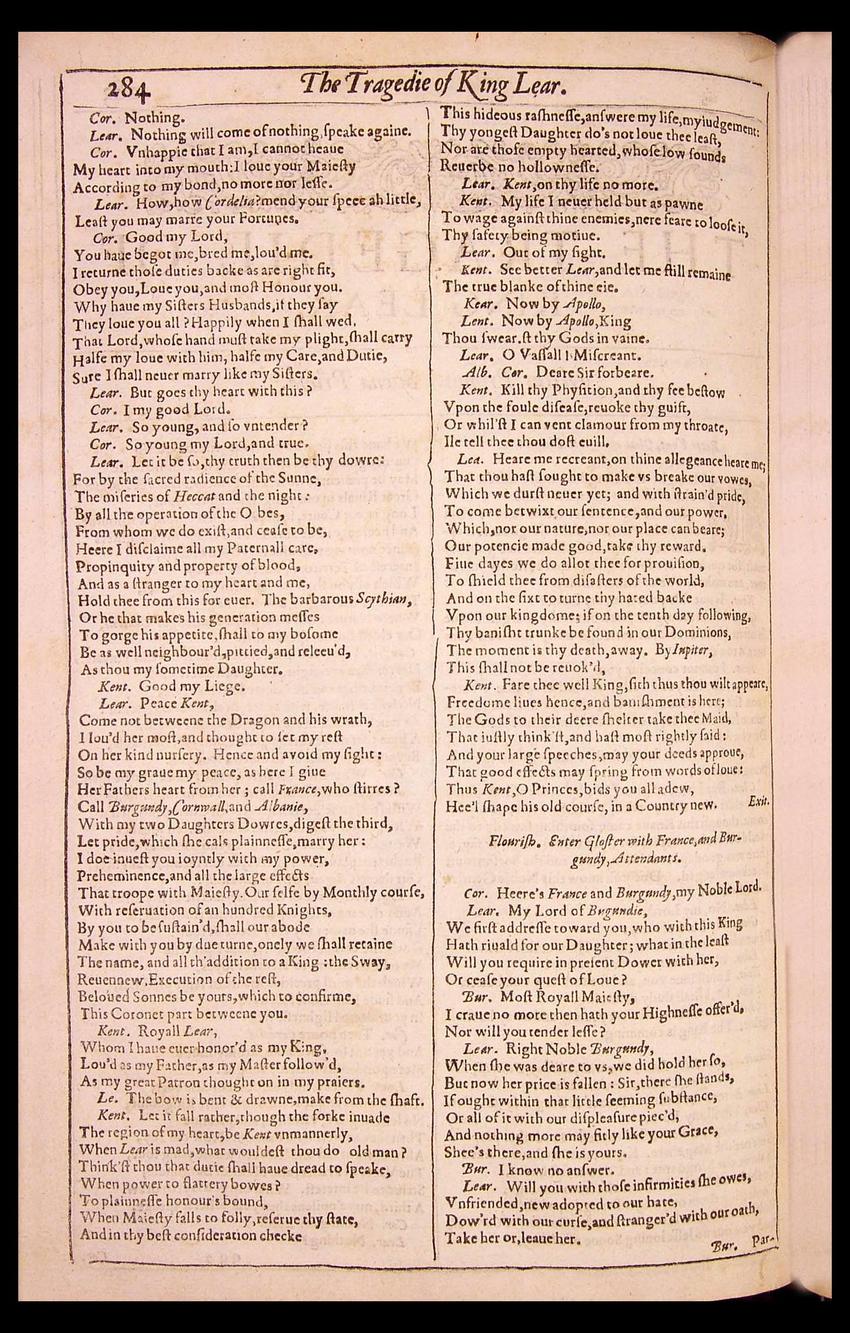 284
The Tragedie of King Lear.
Cor. Nothing.
Lear. Nothing will come of nothing, ſpeake againe.
Cor. Vnhappie that I am, I cannot heaue
My heart into my mouth: I loue your Maieſty
According to my bond, no more nor leſſe.
Lear. How, how Cordelia? mend your ſpeec ah little,
Leaſt you may marre your Fortunes.
Cor. Good my Lord,
You haue begot me, bred me, lou'd me.
I returne thoſe duties backe as are right fit,
Obey you, Loue you, and moſt Honour you.
Why haue my Siſters Husbands, if they ſay
They loue you all? Happily when I ſhall wed,
That Lord, whoſe hand muſt take my plight, ſhall carry
Halfe my loue with him, halfe my Care, and Dutie,
Sure I ſhall neuer marry like my Siſters.
Lear. But goes thy heart with this?
Cor. I my good Lord.
Lear. So young, and ſo vntender?
Cor. So young my Lord, and true.
Lear. Let it be ſo, thy truth then be thy dowre:
For by the ſacred radience of the Sunne,
The miſeries of Heccat and the night:
By all the operation of the O bes,
From whom we do exiſt, and ceaſe to be,
Heere I diſclaime all my Paternall care,
Propinquity and property of blood,
And as a ſtranger to my heart and me,
Hold thee from this for euer. The barbarous Scythian,
Or he that makes his generation meſſes
To gorge his appetite, ſhall to my boſome
Be as well neighbour'd, pittied, and releeu'd,
As thou my ſometime Daughter.
Kent. Good my Liege.
Lear. Peace Kent,
Come not betweene the Dragon and his wrath,
I lou'd her moſt, and thought to ſet my reſt
On her kind nurſery. Hence and avoid my ſight:
So be my graue my peace, as here I giue
Her Fathers heart from her; call France, who ſtirres?
Call Burgundy, Cornwall, and Albanie,
With my two Daughters Dowres, digeſt the third,
Let pride, which ſhe cals plainneſſe, marry her:
I doe inueſt you ioyntly with my power,
Preheminence, and all the large effects
That troope with Maieſty. Our ſelfe by Monthly courſe,
With reſeruation of an hundred Knights,
By you to be ſuſtain'd, ſhall our abode
Make with you by due turne, onely we ſhall retaine
The name, and all th'addition to a King: the Sway,
Reuennew, Execution of the reſt,
Beloued Sonnes be yours, which to confirme,
This Coronet part betweene you.
Kent. Royall Lear,
Whom I haue euer honor'd as my King,
Lou'd as my Father, as my Maſter follow'd,
As my great Patron thought on in my praiers.
Le. The bow is bent & drawne, make from the ſhaft.
Kent. Let it fall rather, though the forke inuade
The region of my heart, be Kent vnmannerly,
When Lear is mad, what wouldeſt thou do old man?
Think'ſt thou that dutie ſhall haue dread to ſpeake,
When power to flattery bowes?
To plainneſſe honour's bound,
When Maieſty falls to folly, reſerue thy ſtate,
And in thy beſt conſideration checke
This hideous raſhneſſe, anſwere my life, my iudgement:
Thy yongeſt Daughter do's not loue thee leaſt,
Nor are thoſe empty hearted, whoſe low ſounds
Reuerbe no hollowneſſe.
Lear. Kent, on thy life no more.
Kent. My life I neuer held but as pawne
To wage againſt thine enemies, nere feare to looſe it,
Thy ſafety being motiue.
Lear. Out of my ſight.
Kent. See better Lear, and let me ſtill remaine
The true blanke of thine eie.
Kear. Now by Apollo,
Lent. Now by Apollo, King
Thou ſwear.ſt thy Gods in vaine.
Lear. O Vaſſall! Miſcreant.
Alb. Cor. Deare Sir forbeare.
Kent. Kill thy Phyſition, and thy fee beſtow
Vpon the foule diſeaſe, reuoke thy guift,
Or whil'ſt I can vent clamour from my throate,
Ile tell thee thou doſt euill.
Lea. Heare me recreant, on thine allegeance heare me;
That thou haſt ſought to make vs breake our vowes,
Which we durſt neuer yet; and with ſtrain'd pride,
To come betwixt our ſentence, and our power,
Which, nor our nature, nor our place can beare;
Our potencie made good, take thy reward.
Fiue dayes we do allot thee for prouiſion,
To ſhield thee from diſaſters of the world,
And on the ſixt to turne thy hated backe
Vpon our kingdome; if on the tenth day following,
Thy baniſht trunke be found in our Dominions,
The moment is thy death, away. By Iupiter,
This ſhall not be reuok'd,
Kent. Fare thee well King, ſith thus thou wilt appeare,
Freedome liues hence, and baniſhment is here;
The Gods to their deere ſhelter take thee Maid,
That iuſtly think'ſt, and haſt moſt rightly ſaid:
And your large ſpeeches, may your deeds approue,
That good effects may ſpring from words of loue:
Thus Kent, O Princes, bids you all adew,
Hee'l ſhape his old courſe, in a Country new. Exit.
Flouriſh. Enter Gloſter with France, and Bur-
gundy, Attendants.
Cor. Heere's France and Burgundy, my Noble Lord.
Lear. My Lord of Bugundie,
We firſt addreſſe toward you, who with this King
Hath riuald for our Daughter; what in the leaſt
Will you require in preſent Dower with her,
Or ceaſe your queſt of Loue?
Bur. Moſt Royall Maieſty,
I craue no more then hath your Highneſſe offer'd,
Nor will you tender leſſe?
Lear. Right Noble Burgundy,
When ſhe was deare to vs, we did hold her ſo,
But now her price is fallen: Sir, there ſhe ſtands,
If ought within that little ſeeming ſubſtance,
Or all of it with our diſpleaſure piec'd,
And nothing more may fitly like your Grace,
Shee's there, and ſhe is yours.
Bur. I know no anſwer.
Lear. Will you with thoſe infirmities ſhe owes,
Vnfriended, new adopted to our hate,
Dow'rd with our curſe, and ſtranger'd with our oath,
Take her or, leaue her.
Bur. Par-